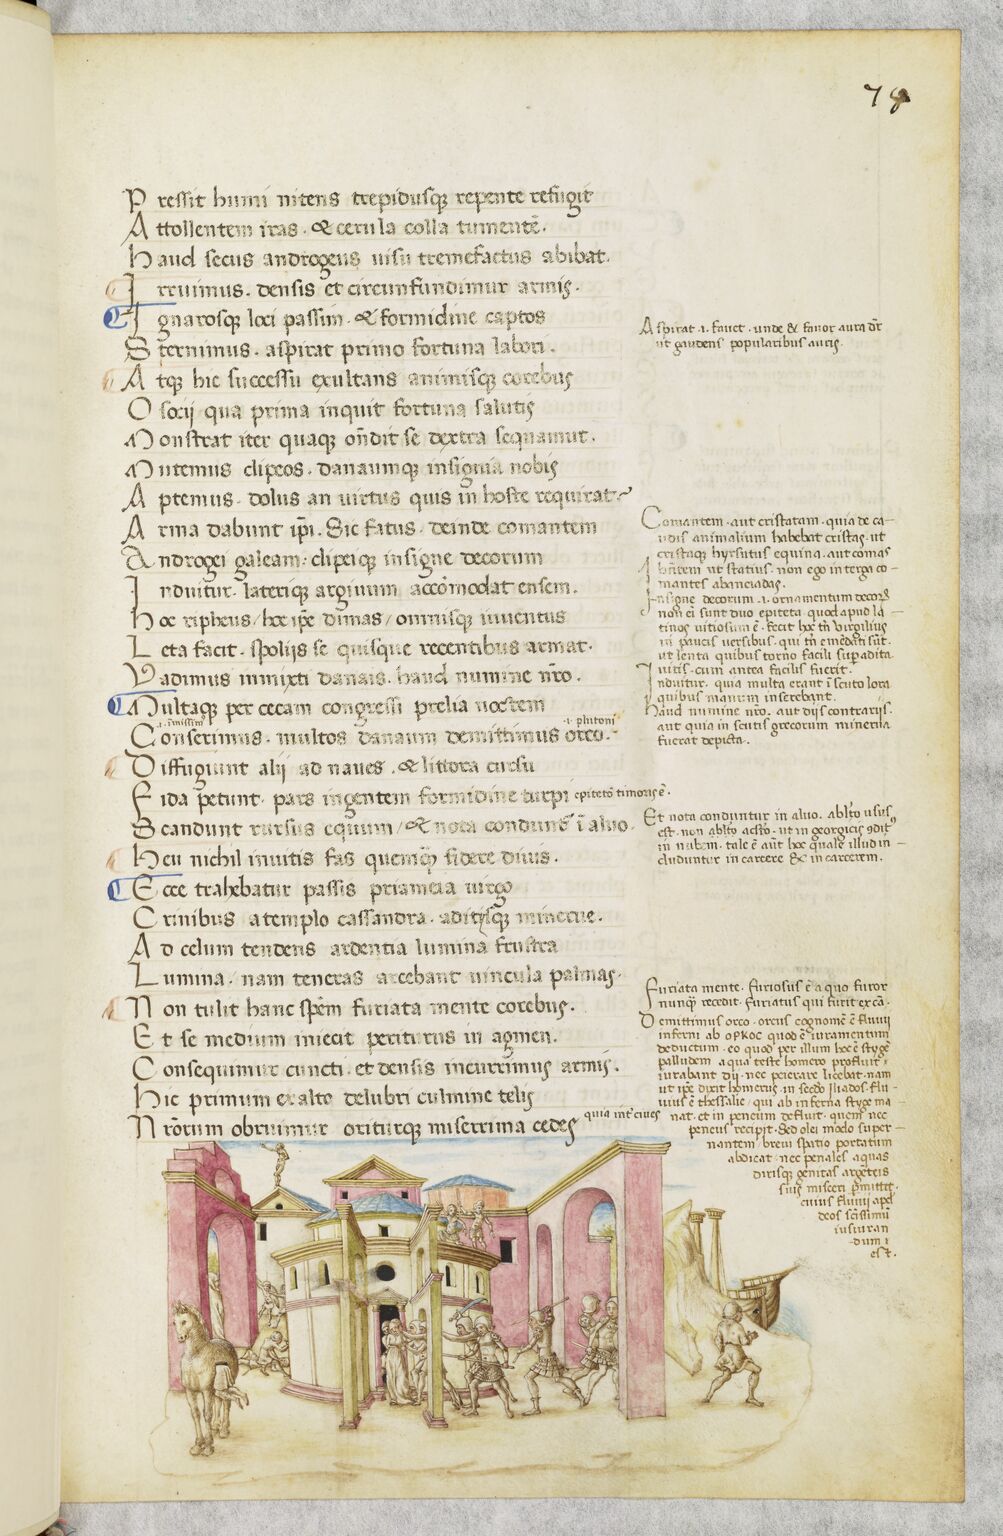 78
Pressit humi nitens trepidusq; repente refugit
Attollentem iras · & cerula colla tumentē ·
Haud secus androgeus uisu tremefactus abibat ·
Irruimus · densis et circunfundimur armis ·
Ignarosq; loci passim · & formidine captos
Sternimus · aspirat primo fortuna labori ·
Atq; hic successu exultans animisq; corebus
O socij qua prima inquit fortuna salutis
Monstrat iter quaq; oñdit se dextra sequamur ·
Mutemus clipeos · danaumq; insignia nobis
Aptemus · dolus an uirtus quis in hoste requirat
Arma dabunt ip̄i · Sic fatus · deinde comantem
Androgei galeam · clipeiq; insigne decorum
Induitur · lateriq; argiuum accōmodat ensem ·
Hoc ripheus / hoc ip̄e dimas / omnisq; iuuentus
Leta facit · spolijs se quisque recentibus armat ·
Vadimus inmixti danais · haud numine nr̄o ·
Multaq; per cecam congressi prelia noctem
·i· plutoni
Conserimus · multos danaum demittimus orco ·
Diffugiunt alij ad naues · & littora cursu
Fida petunt · pars ingentem formidine turpi epitetō timoris ē ·
Scandunt rursus equum / & nota condunt᷑ ī aluo ·
Heu nichil inuitis fas quemq̄ fidere diuis ·
Ecce trahebatur passis priameia uirgo
Crinibus a templo cassandra · aditisq; minerue ·
Ad celum tendens ardentia lumina frustra
Lumina · nam teneras arcebant uincula palmas ·
Non tulit hanc spēm furiata mente corebus ·
Et se medium iniecit periturus in agmen ·
Consequimur cuncti · et densis incurrimus armis ·
Hic primum ex alto delubri culmine telis
Nr̄orum obruimur oriturq; miserrima cedes quia int᷑ ciues
Aspirat ·i· fauet · unde & fauor aura dr̄
ut gaudens popularibus auris ·
Comantem · aut cristatam · quia de ca-
udis animalium habebat cristas · ut
cristaq; hyrsutus equina · aut comas
hñtem ut statius · non ego in terga co-
mantes abanciadas ·
Insigne decorum ·i· ornamentum decorū
non ēi sunt duo epiteta quod apud la-
tinos uitiosum ē · fecit hoc tñ uirgilius
in paucis uersibus · qui tñ emēdati sūt ·
ut lenta quibus torno facili supaddita
uitis · cum antea facilis fuerit ·
Induitur · quia multa erant ī scuto lora
quibus manum inserebant ·
Haud numine nr̄o · aut dijs contrarijs ·
aut quia in scutis grecorum minerua
fuerat depicta ·
Et nota conduntur in aluo · ablt̄o usus
est · non ablt̄o actō · ut in georgicis ꝯdit᷑
in nubem · tale ē aūt hoc quale illud in-
cluduntur in carcere & in carcerem ·
Furiata mente · furiosus ē a quo furor
nunq̄ recedit · furiatus qui furit ex cā ·
Demittimus orco · orcus cognomē ē fluuij
inferni ab ορκος quod ē iuramentum
deductum · eo quod per illum hoc ē stygē
palludem a qua teste homero profluit ·
iurabant dij · nec peierare licebat · nam
ut ip̄e dixit homerus · in scd̄o iliados · flu-
uius ē thessalie / qui ab inferna styge ma-
nat · et in peneum defluit · quem nec
peneus recipit · sed olei modo super-
nantem / breui spatio portatum
abdicat · nec penales aquas
dirisq; genitas argenteis
suis misceri p̄mittit ·
cuius fluuij apd̄
deos sc̄issimū
iusiuran
dum ·
est ·